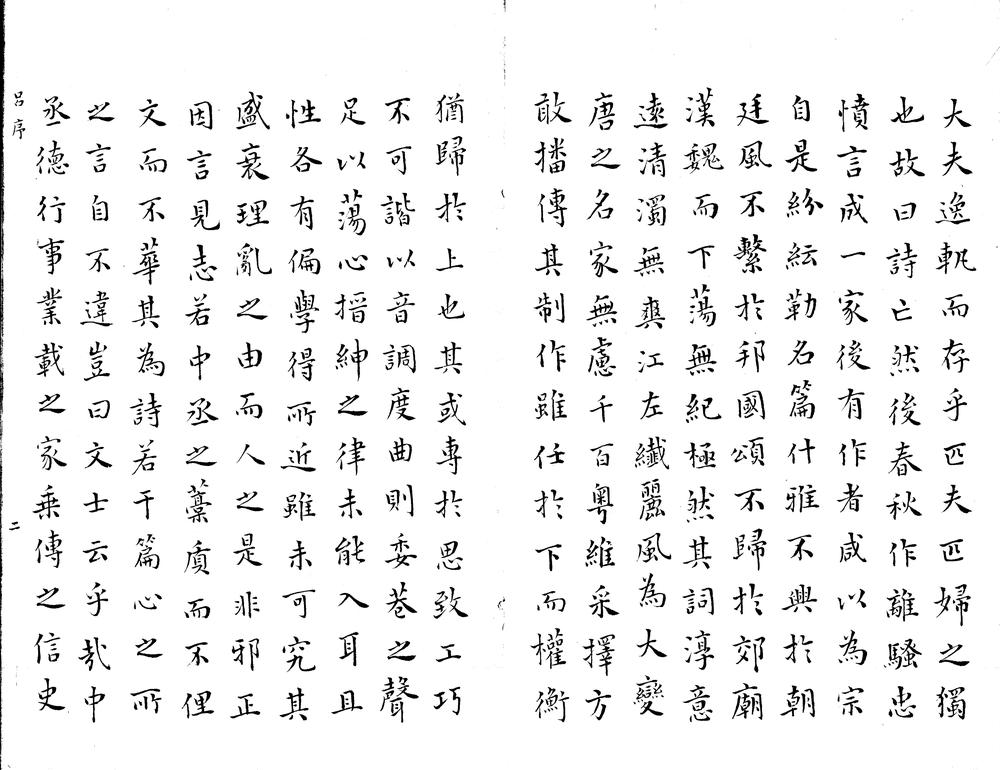 大夫逸軌而存乎匹夫匹婦之獨
也故曰詩亡然後春秋作離騷忠
憤言成一家後有作者咸以為宗
自是紛紜勒名篇什雅不興於朝
廷風不繫於邦國頌不歸於郊廟
漢魏而下蕩無紀極然其詞淳意
遠清濁無爽江左纖麗風為大變
唐之名家無慮千百粤維采擇方
敢播傳其制作雖任於下而權衡
猶歸於上也其或專於思致工巧
不可諧以音調度曲則委巷之聲
足以蕩心搢紳之律未能入耳且
性各有偏學得所近雖未可究其
盛衰理亂之由而人之是非邪正
因言見志若中丞之藁質而不俚
文而不華其為詩若干篇心之所
之言自不違豈曰文士云乎哉中
丞德行事業載之家乗傳之信史
呂序
二